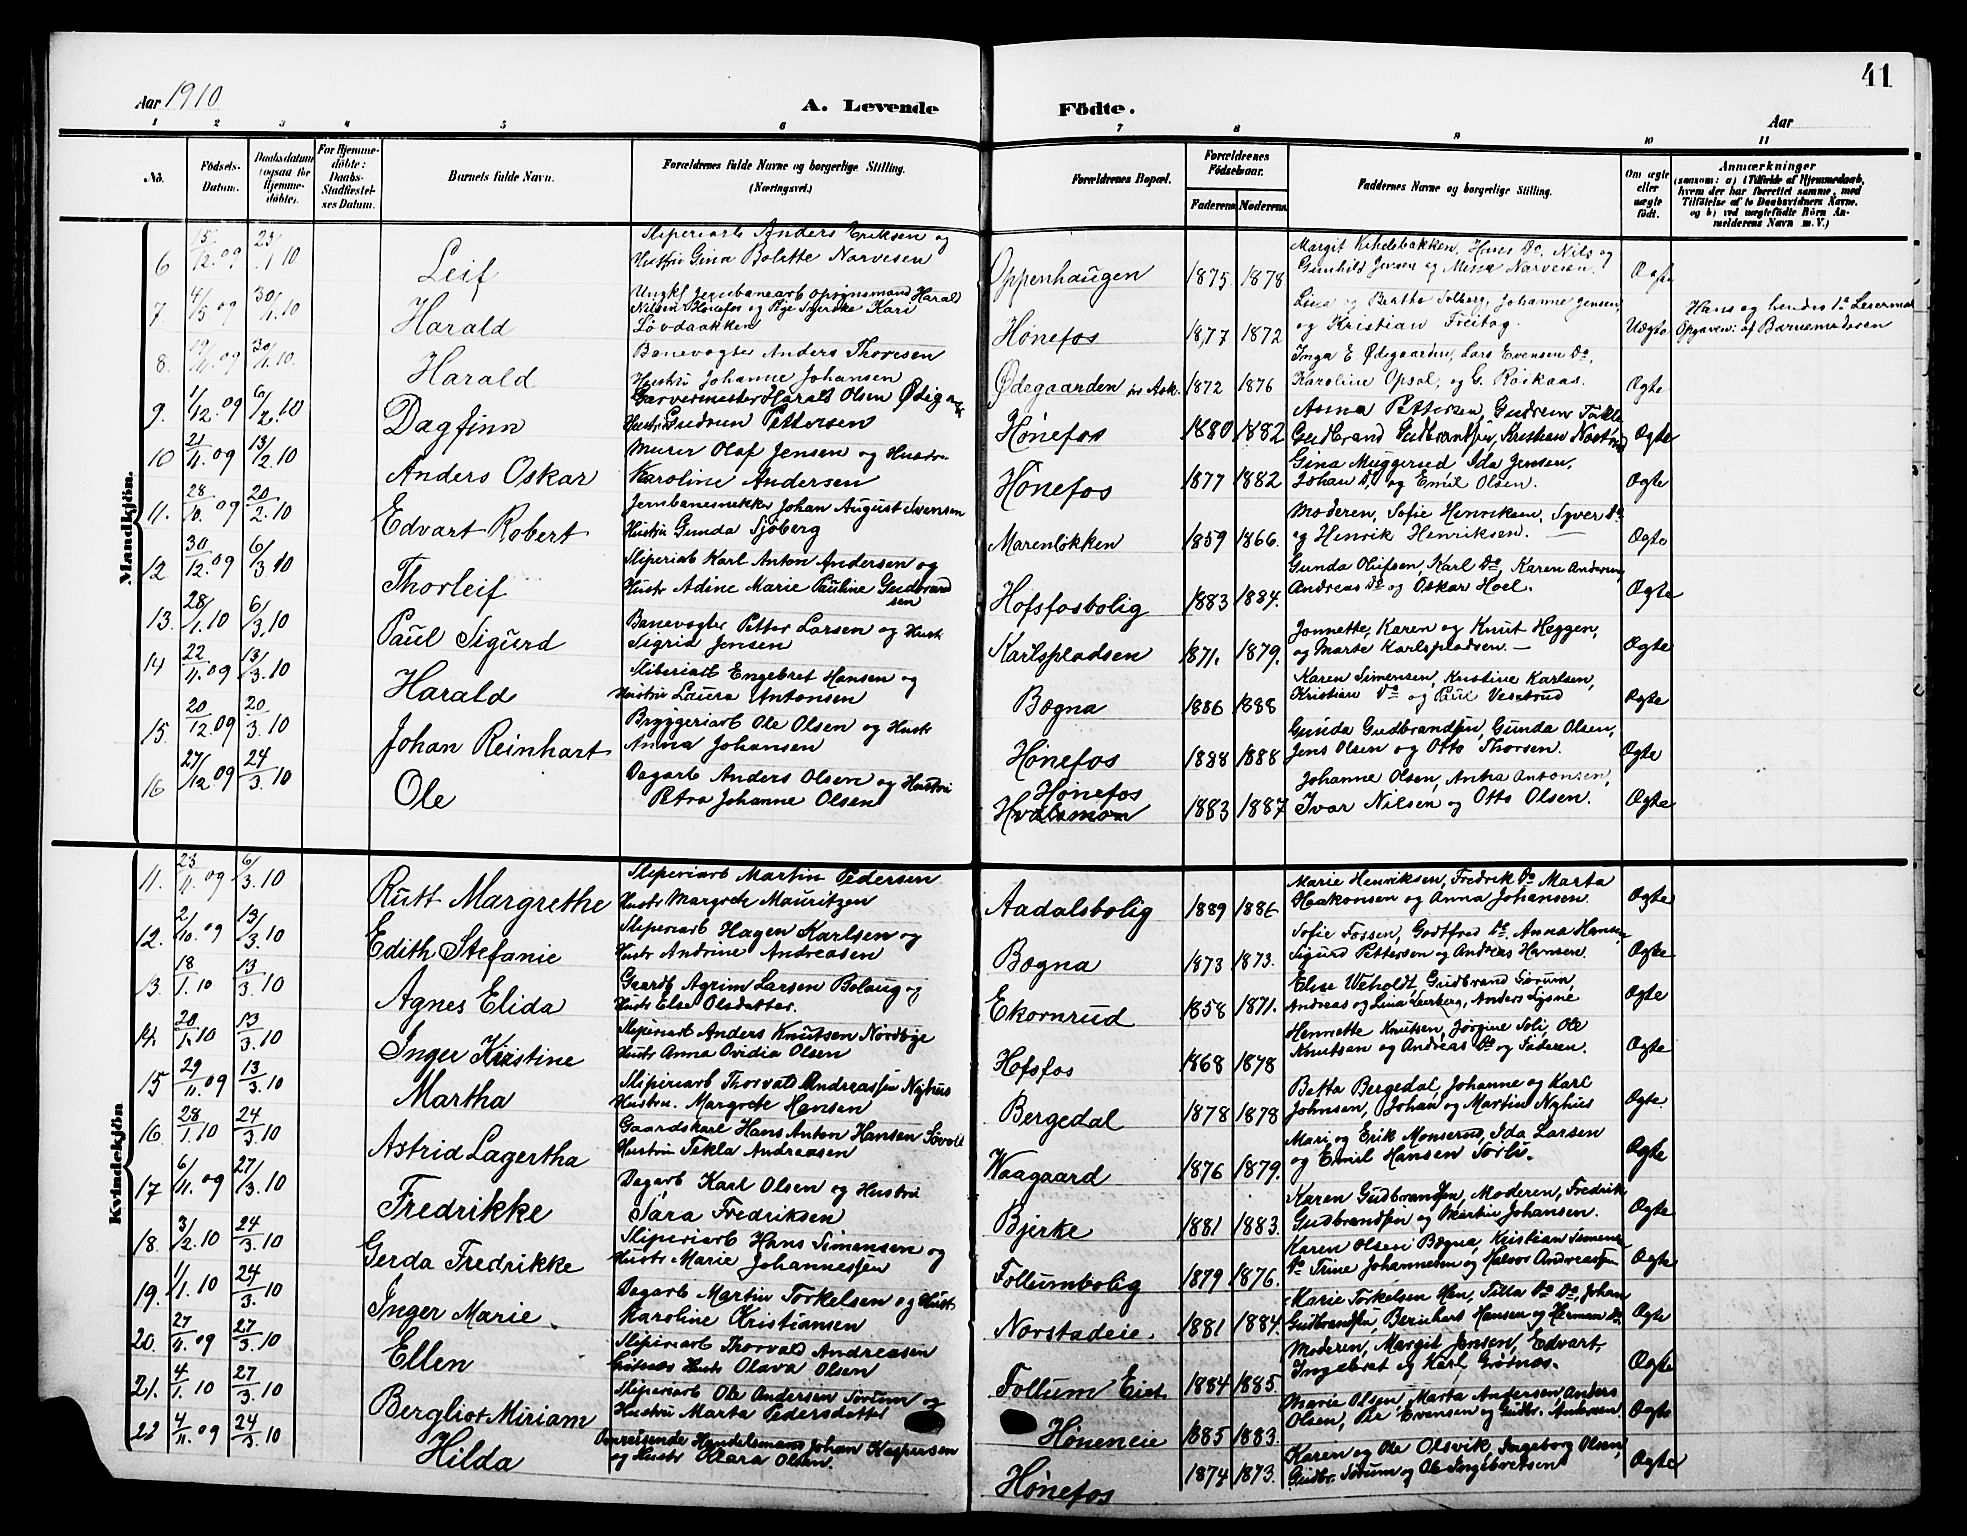 41
Aar 1910
A. Levende Födte.
Aar
1 2 3 4 5 6 7 8 9 10 11
No. Födsels-Datum. Daabsdatum (ogsaa for Hjemmedöbte). For Hjemmedöbte: Daabs-Stadfæstelses Datum. Barnets fulde Navn. Forældrenes fulde Navne og borgerlige Stilling. (Næringsvei.) Forældrenes Bopæl. Forældrenes Födselsaar. Faderens Moderens Faddernes Navne og borgerlige Stilling. Om ægte eller uægte födt. Anmærkninger (saasom: a) i Tilfælde af Hjemmedaab, hvem der har forrettet samme, med Tilföielse af to Daabsvidners Navne, og b) ved uægtefödte Börn Anmelderens Navn m. V.)
Mandkjön.
6 15/12.09 23/1.10 Leif Sliperiarb Anders Eriksen og Hustru Gina Bolette Narvesen Oppenhaugen 1875 1878 Margit Hans Do, Nils og Gunhild Jensen og Mina Narvesen. Ægte
7. 4/5 09 30/1.10 Harald Ungkf Jernbanearb opsynsmand Harald Nilsen Hønefos og Pige Kari Løvdaakken Hønefos 1877 1872 Lina og Bertha Solberg, Johanne Jensen, og Kristian Freitag. Uægte Hans og hendes 1ste Leiermaal Opgaven: af Barnemoderen
8. 19/11.09 30/1.10 Harald Banevogter Anders Thoresen Hustru Johanne Johansen Ødegaarden Ask. 1872 1876 Inga E Ødegaarden, Lars Evensen Do, Karoline Opsal, og G. Røikaas. Ægte
9. 1/12.09 6/2.10 Dagfinn Garvermester Harald Olsen Hustru Gudrun Pettersen Hønefos 1880 1882 Anna Pettersen, Gudrun Gudbrand Gudbrandsen, Kristian Ægte
10 21/11.09 13/2.10 Anders Oskar Murer Olaf Jensen og Hustru Karoline Andersen Hønefos 1877 1882 Gina Muggerud Ida Jensen, Johan Do og Emil Olsen. Ægte
11. 28/10.09 20/2.10 Edvart Robert Jernbanesnekker Johan August Svensen Hustru Gunda Sjøberg Marenløkken 1859 1866. Moderen, Sofie Henriksen, Syver Do og Henrik Henriksen. Ægte
12 30/12.09 6/3.10 Thorleif Sliperiarb Karl Anton Andersen og Hustr Adine Marie Pauline Gudbrandsen Hofsfosbolig 1883 1884. Gunda Olufsen, Karl Do, Karen Andersen, Andreas Do og Oskar Hoel. Ægte
13. 28/1.10 6/3.10 Paul Sigurd Banevogter Petter Larsen og Hustr Sigrid Jensen Karlspladsen 1871. 1879. Jonnette, Karen og Knut Heggen, og Marte Karlspladsen. Ægte
14 22/11.09 13/3.10 Harald Sliberiarb Engebret Hansen og Hustru Laura Antonsen Bægna 1886 1888 Karen Simensen, Kristine Karlsen, Kristian Do og Paul Vesetrud Ægte
15. 20/12.09 20/3.10 Johan Reinhart Bryggeriarb Ole Olsen og Hustr Anna Johansen Hønefos 1888 1888 Gunda Gudbrandsen, Gunda Olsen, Jens Olsen og Otto Thorsen. Ægte
16 27/12 09 24/3.10 Ole Dagarb Anders Olsen og Hustru Petra Johanne Olsen Hønefos Hvalsmoen 1883 1887 Johanne Olsen, Antonsen, Ivar Nilsen og Otto Olsen. Ægte
Kvindekjön
11. 23/11.09 6/3.10 Rutt Margrethe Sliperiarb Martin Pedersen Hustr Margrete Mauritzen Aadalsbolig 1889 1886 Marie Henriksen, Fredrik Do Marta Haakonsen og Anna Johansen. Ægte
12. 2/10.09 13/3.10 Edith Stefanie Sliperiarb Hagen Karlsen og Hustr Andrine Andreasen Bægna 1873 1873. Sofie Fossen, Godtfred Do. Anna Hansen, Sigurd Pettersen og Andreas Hansen. Ægte
13. 18/1.10 13/3.10 Agnes Elida Gaardb Agrim Larsen Bolaug og Hustr Else Olsdatter. Ekornrud 1858 1871. Else Weholdt, Gudbrand Sørum, Andreas og Lina Anders Lysne Ægte
14. 20/1.10 13/3.10 Inger Kristine Sliperiarb Anders Knutsen Nordbye Hustr Anna Ovidia Olsen Hofsfos 1868 1878 Henriette Knutsen, Jørgine Soli, Ole Knutsen og Andreas Do og Faderen. Ægte
15 29/11.09 13/3.10 Martha Sliperiarb Thorvald Andreassen Nyhus Hustru. Margrete Hansen Bergedal 1878 1878 Betta Bergedal, Johanne og Karl Johnsen, Johan og Martin Nyhus Ægte.
16 28/1.10 24/3.10 Astrid Lagertha Gaardskarl Hans Anton Hansen Hustru Tekla Andreasen Waagaard 1876 1879. Mari og Erik Monserud, Ida Larsen og Emil Hansen Sørli. Ægte
17 6/11.09 27/3.10 Fredrikke Dagarb Karl Olsen og Hustru Sara Fredriksen Bjerke 1881 1883. Karen Gudbrandsen, Moderen, Fredrik Gudbrandsen og Martin Johansen. Ægte
18. 3/2.10 24/3.10 Gerda Fredrikke Sliperiarb Hans Simensen og Hustr Marie Johannessen Follumbolig 1879 1876. Karen Olsen Bægna, Kristian Simensen Do Trine Johannesen og Halvor Andreassen Ægte
19. 11/1.10 24/3.10 Inger Marie. Dagarb Martin Torkelsen og Hustr Karoline Kristiansen Norstadeie. 1881 1884. Marie Torkelsen Hen, Do Do, Johan Gudbrandsen, Bernhart Hansen og Herman Do. Ægte
20. 27/11.09 27/3.10 Ellen Sliperiarb Thorvald Andreasen Grøtnæs Hustr Olava Olsen Follum Eiet 1884 1885. Moderen, Margit Jensen, Edvart, Ingebret og Karl Grøtnæs. Ægte
21. 4/1.10 27/3.10 Bergliot Miriam Sliperiarb Ole Andersen Sørum og Hustru Marta Pedersdatter Høneneie 1885 1883. Marie Olsen, Marta Andersen, Anders Olsen, Per Evensen og Gudbr. Andersen. Ægte
22 4/11.09 24/3.10 Hilda Omreisende Handelsmand Johan Kaspersen og Hustr Klara Olsen. Hønefos 1874 1873. Karen og Ole Olsvik, Ingeborg Olsen, Gudbr. Sørum og Ole Ingebretsen Ægte